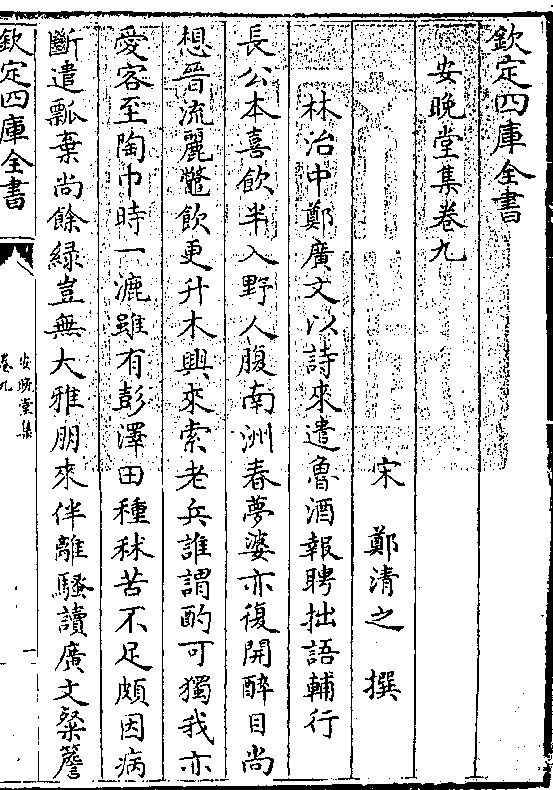 欽定四庫全書
安晚堂集卷九
宋　鄭清之　撰
林治中鄭廣文以詩來遣魯酒報聘拙語輔行
長公本喜飲半入野人腹南洲春夢婆亦復開醉目尚
想晉流麗鼈飲更升木興來索老兵誰謂酌可獨我亦
愛客至陶巾時一漉雖有彭澤田種秫苦不足頗因病
斷遣瓢棄尚餘緑豈無大雅朋來伴離騷讀廣文粲簷
欽定四庫全書
安晚堂集
卷九
一